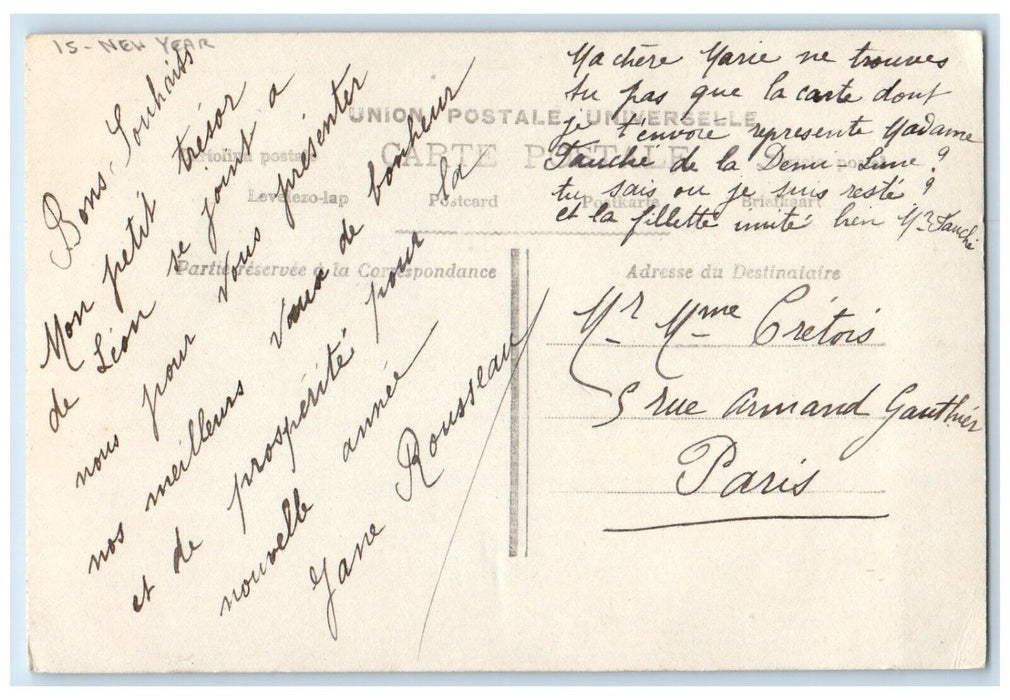 15 - NEW YEAR
Bons Souhaits
Mon petit trésor
de Léon se joint a
nous pour vous présenter
nos meilleurs vœux de bonheur
et de prospérité pour la
nouvelle année
Jane Rousseau
Ma chère Marie ne trouves
tu pas que la carte dont
je t'envoie represente Madame
Fauché de la Demi-Lune ?
tu sais ou je suis resté ?
et la fillette imité bien Mr Fauché
UNION POSTALE UNIVERSELLE
CARTE POSTALE
Cartolina postale
Levelezo-lap Postcard Postkarte Briefkaart
Partie réservée à la Correspondance
Adresse du Destinataire
Mr Mme Crétois
5 rue Armand Gauthier
Paris